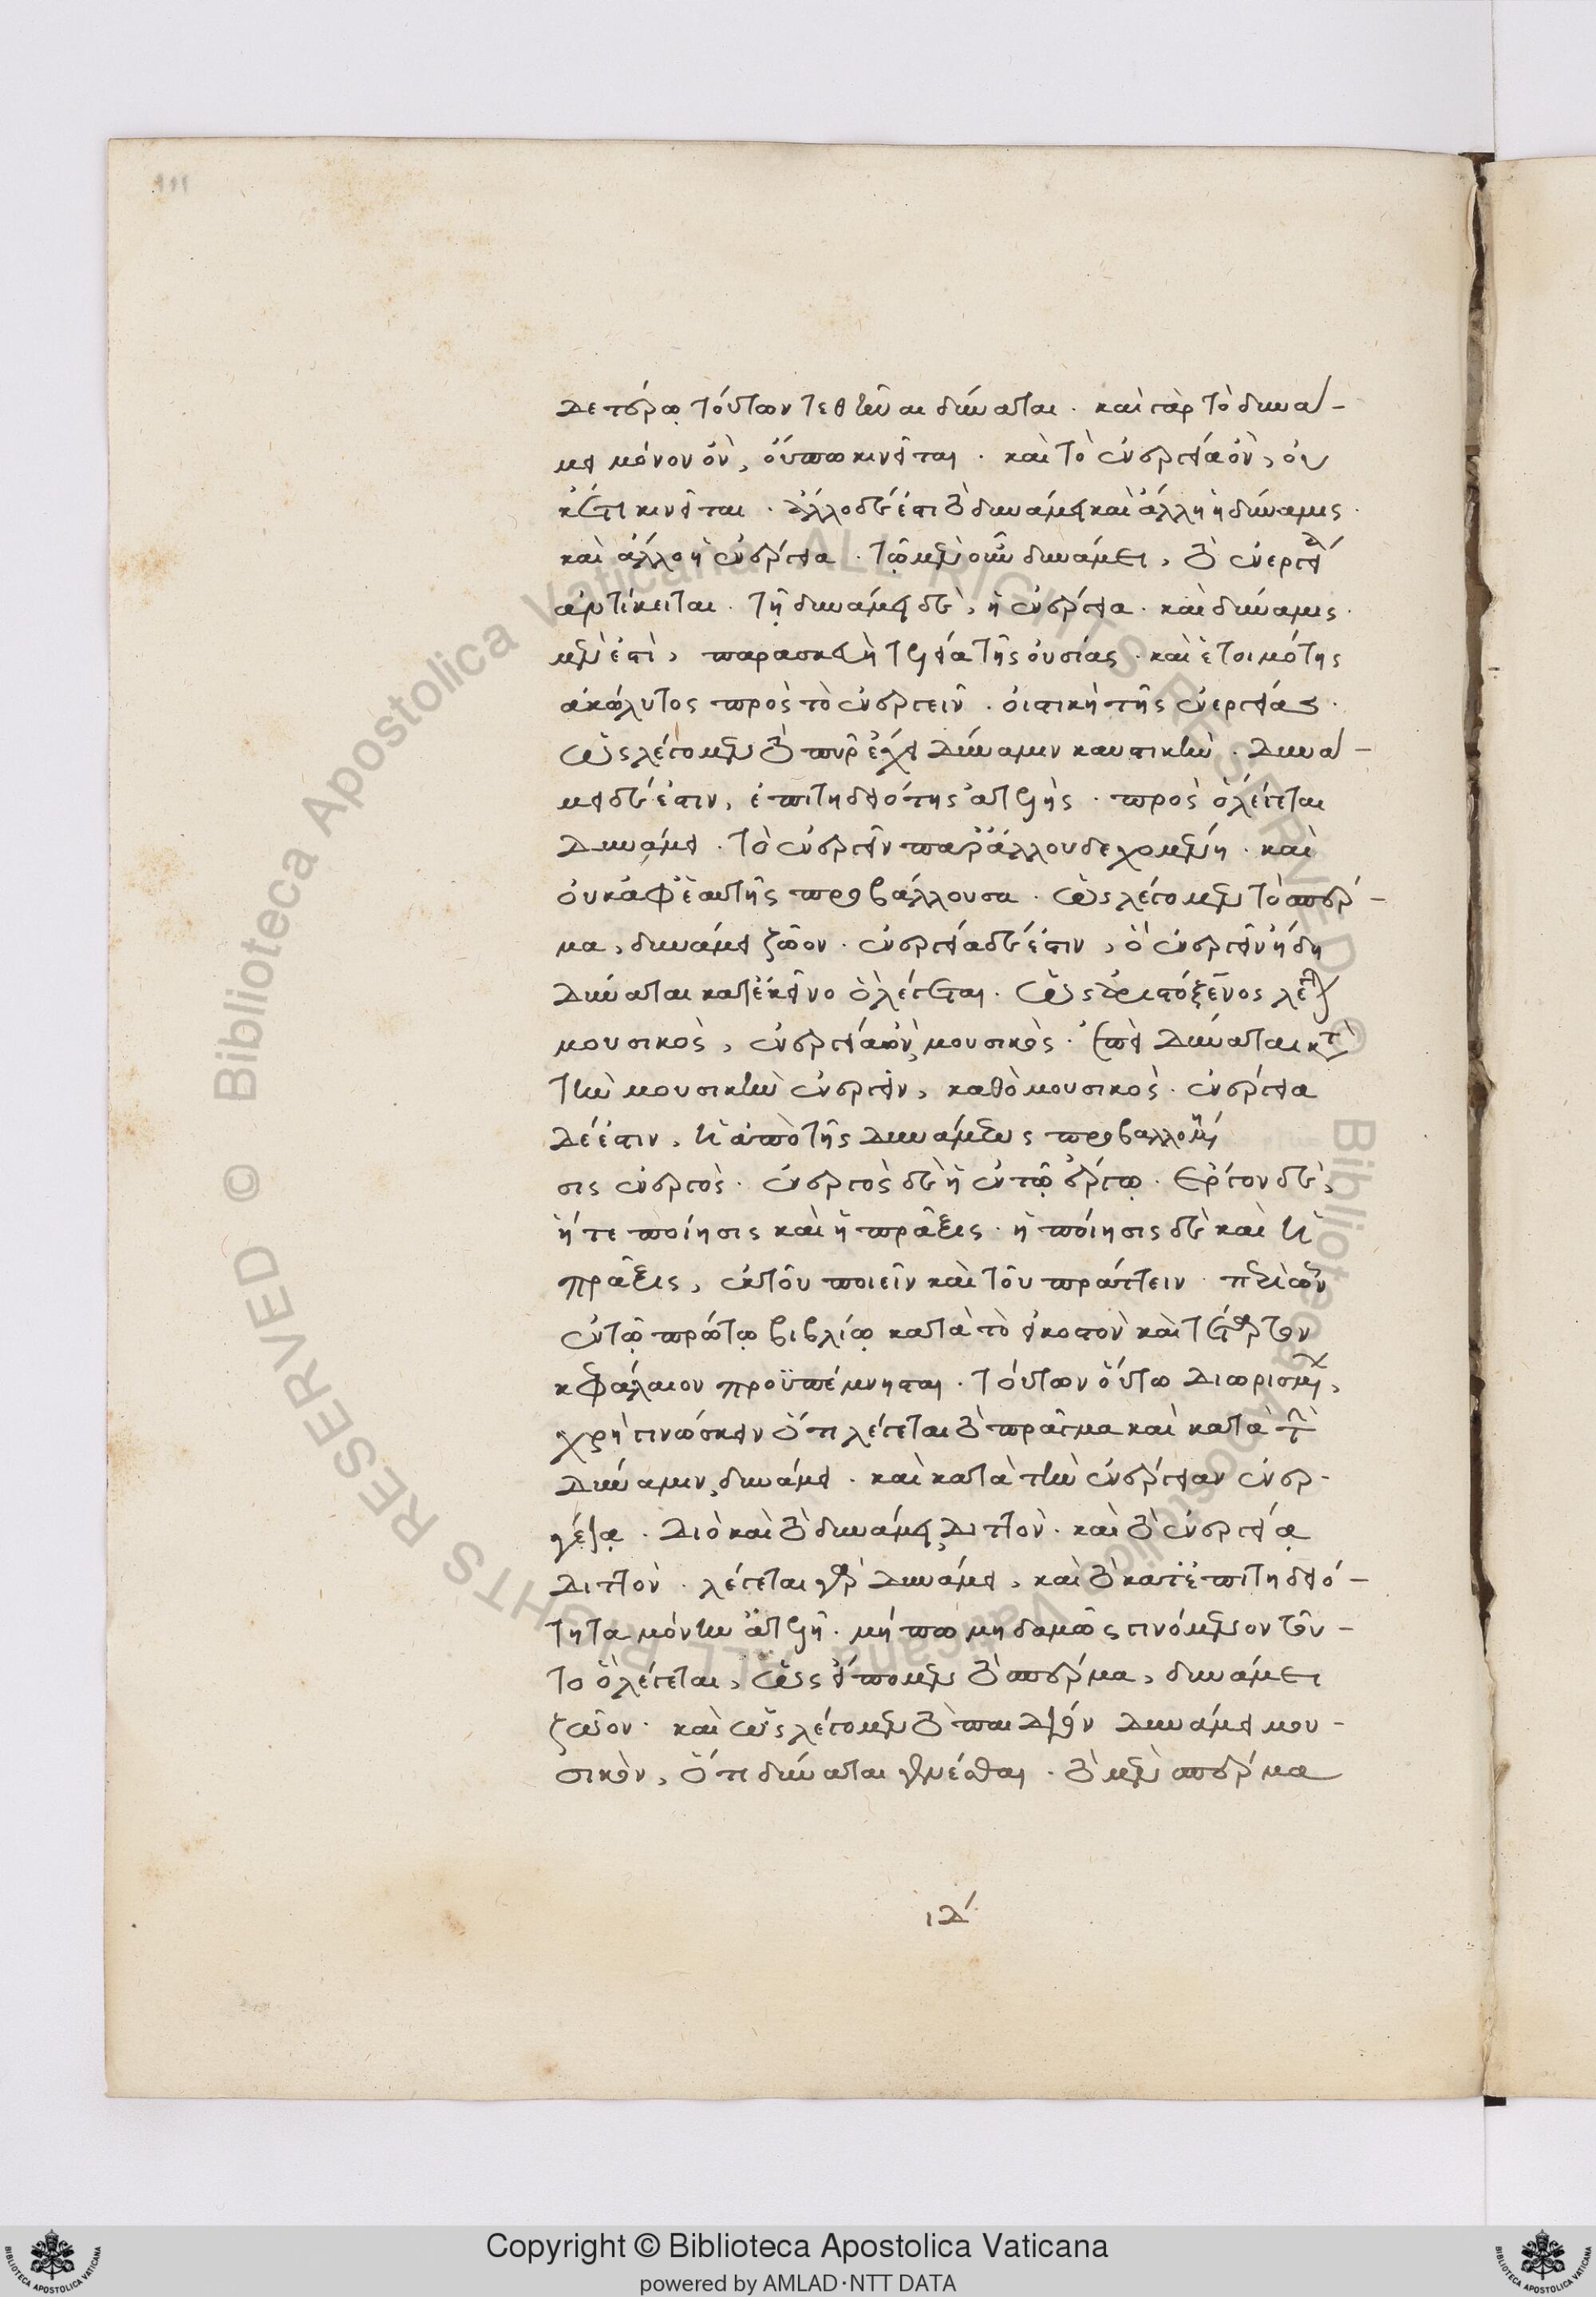 δετέρω τούτων τεθῆναι δύναται. καὶ γὰρ τὸ δυνά-
μει μόνον ὂν, οὔπω κινεῖται. καὶ τὸ ἐνεργείᾳ ὂν, οὐ
κέτι κινεῖται. ἄλλο δέ ἐστι τὸ δυνάμει καὶ ἄλλη ἡ δύναμις.
καὶ ἄλλο ἡ ἐνέργεια. τῷ μὲν οὖν δυνάμει, τὸ ἐνεργείᾳ
ἀντίκειται. τῇ δυνάμει δὲ, ἡ ἐνέργεια. καὶ δύναμις
μὲν ἐστὶ, παρασκευὴ τελεία τῆς οὐσίας. καὶ ἑτοιμότης
ἀκώλυτος πρὸς τὸ ἐνεργεῖν. οἰστικὴ τῆς ἐνεργείας.
ὡς λέγομεν τὸ πῦρ ἔχει δύναμιν καυστικὴν. δυνά-
μει δέ ἐστιν, ἐπιτηδειότης ἀτελὴς. πρὸς ὃ λέγεται
δυνάμει. τὸ ἐνεργεῖν παρ' ἄλλου δεχομένη. καὶ
οὐκ ἀφ' ἑαυτῆς προβάλλουσα. ὡς λέγομεν τὸ σπέρ-
μα, δυνάμει ζῶον. ἐνεργείᾳ δέ ἐστιν, ὃ ἐνεργεῖν ἤδη
δύναται κατ' ἐκεῖνο ὃ λέγεται. ὡς ἀριστόξενος λέγεται
μουσικὸς, ἐνεργείᾳ ὢν μουσικὸς. ἐπεὶ δύναται κατὰ
τὴν μουσικὴν ἐνεργεῖν, καθὸ μουσικὸς. ἐνέργεια
δέ ἐστιν, ἡ ἀπὸ τῆς δυνάμεως προβαλλομένη
σις ἐνεργὸς. ἐνεργὸς δὲ ἡ ἐν τῷ ἔργῳ. ἔργον δὲ,
ἥ τε ποίησις καὶ ἡ πρᾶξις. ἡ ποίησις δὲ καὶ ἡ
πρᾶξις, ἐκ τοῦ ποιεῖν καὶ τοῦ πράττειν. περὶ ὧν
ἐν τῷ πρώτῳ βιβλίῳ κατὰ τὸ εἰκοστὸν καὶ τέταρτον
κεφάλαιον προϋπέμνησται. τούτων οὕτω διωρισμένων,
χρὴ γινώσκειν ὅτι λέγεται τὸ πρᾶγμα καὶ κατὰ τὴν
δύναμιν, δυνάμει. καὶ κατὰ τὴν ἐνέργειαν ἐνερ-
γείᾳ. διὸ καὶ τὸ δυνάμει, διττὸν. καὶ τὸ ἐνεργείᾳ
διττὸν. λέγεται γὰρ δυνάμει, καὶ τὸ κατ' ἐπιτηδειό-
τητα μόνην ἀτελῆ. μήπω μηδαμῶς γινόμενον τοῦ-
το ὃ λέγεται, ὡς εἴπομεν τὸ σπέρμα, δυνάμει
ζῶον. καὶ ὡς λέγομεν τὸ παιδίον δυνάμει μου-
σικὸν, ὅτι δύναται γενέσθαι. τὸ μὲν σπέρμα
ιδ´
111
Copyright © Biblioteca Apostolica Vaticana
powered by AMLAD·NTT DATA